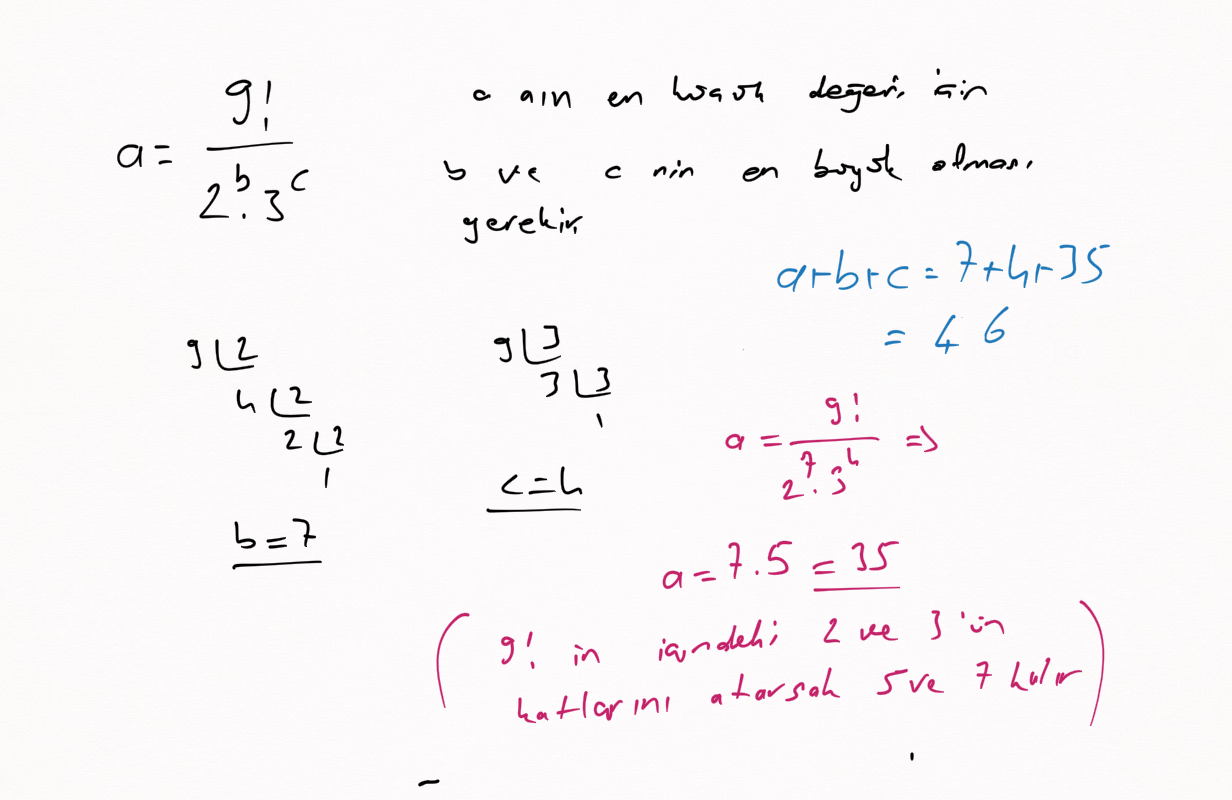 a = 9! / 2^b . 3^c
a nın en küçük değeri için
b ve c nin en büyük olması
gerekir.
a+b+c = 7+4+35
= 46
9 | 2
4 | 2
2 | 2
1
b = 7
9 | 3
3 | 3
1
c = 4
a = 9! / 2^7 . 3^4 =>
a = 7.5 = 35
( 9! in içindeki 2 ve 3 'ün
katlarını atarsak 5 ve 7 kalır )